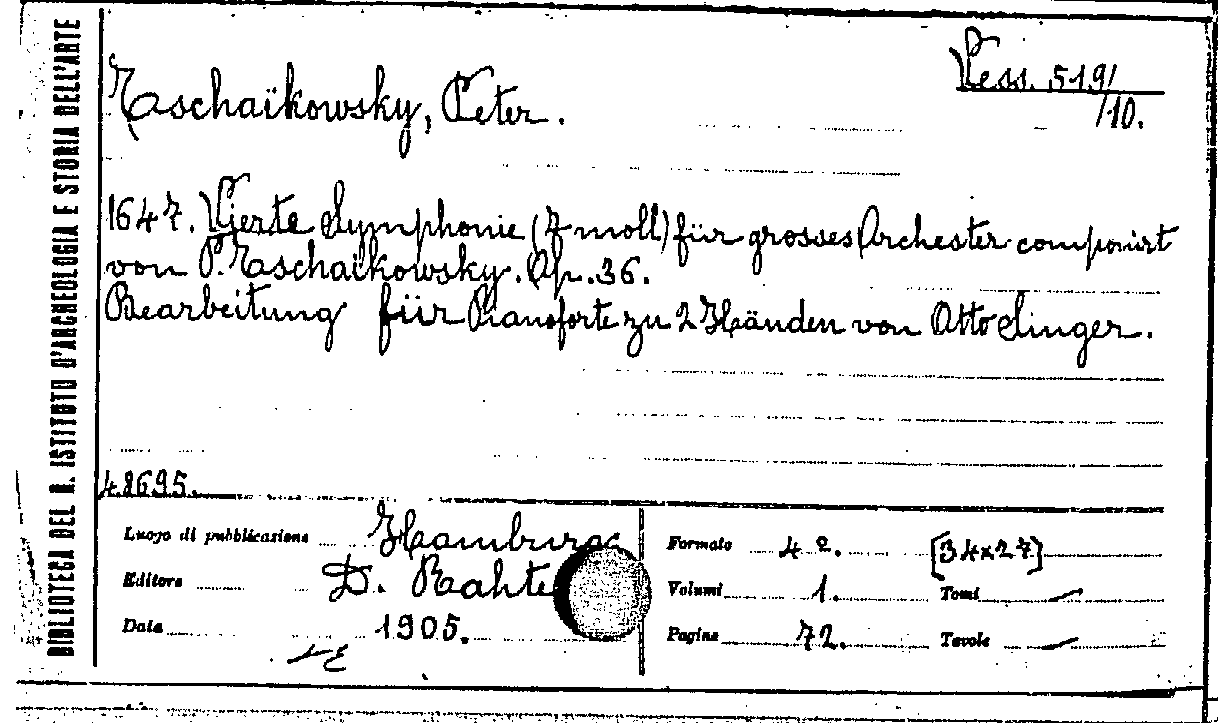 BIBLIOTECA DEL R. ISTITUTO D'ARCHEOLOGIA E STORIA DELL'ARTE
Vess. 519/
/10.
Tschaïkowsky, Peter.
1647. Vierte Symphonie (F moll) für grosses Orchester componirt
von P. Tschaïkowsky. Op. 36.
Bearbeitung für Pianoforte zu 2 Händen von Otto Singer.
48695.
Luogo di pubblicazione Hamburg
Editore D. Rahte
Data 1905.
Formato 4º. [34x27]
Volumi 1. Tomi —
Pagine 72. Tavole —